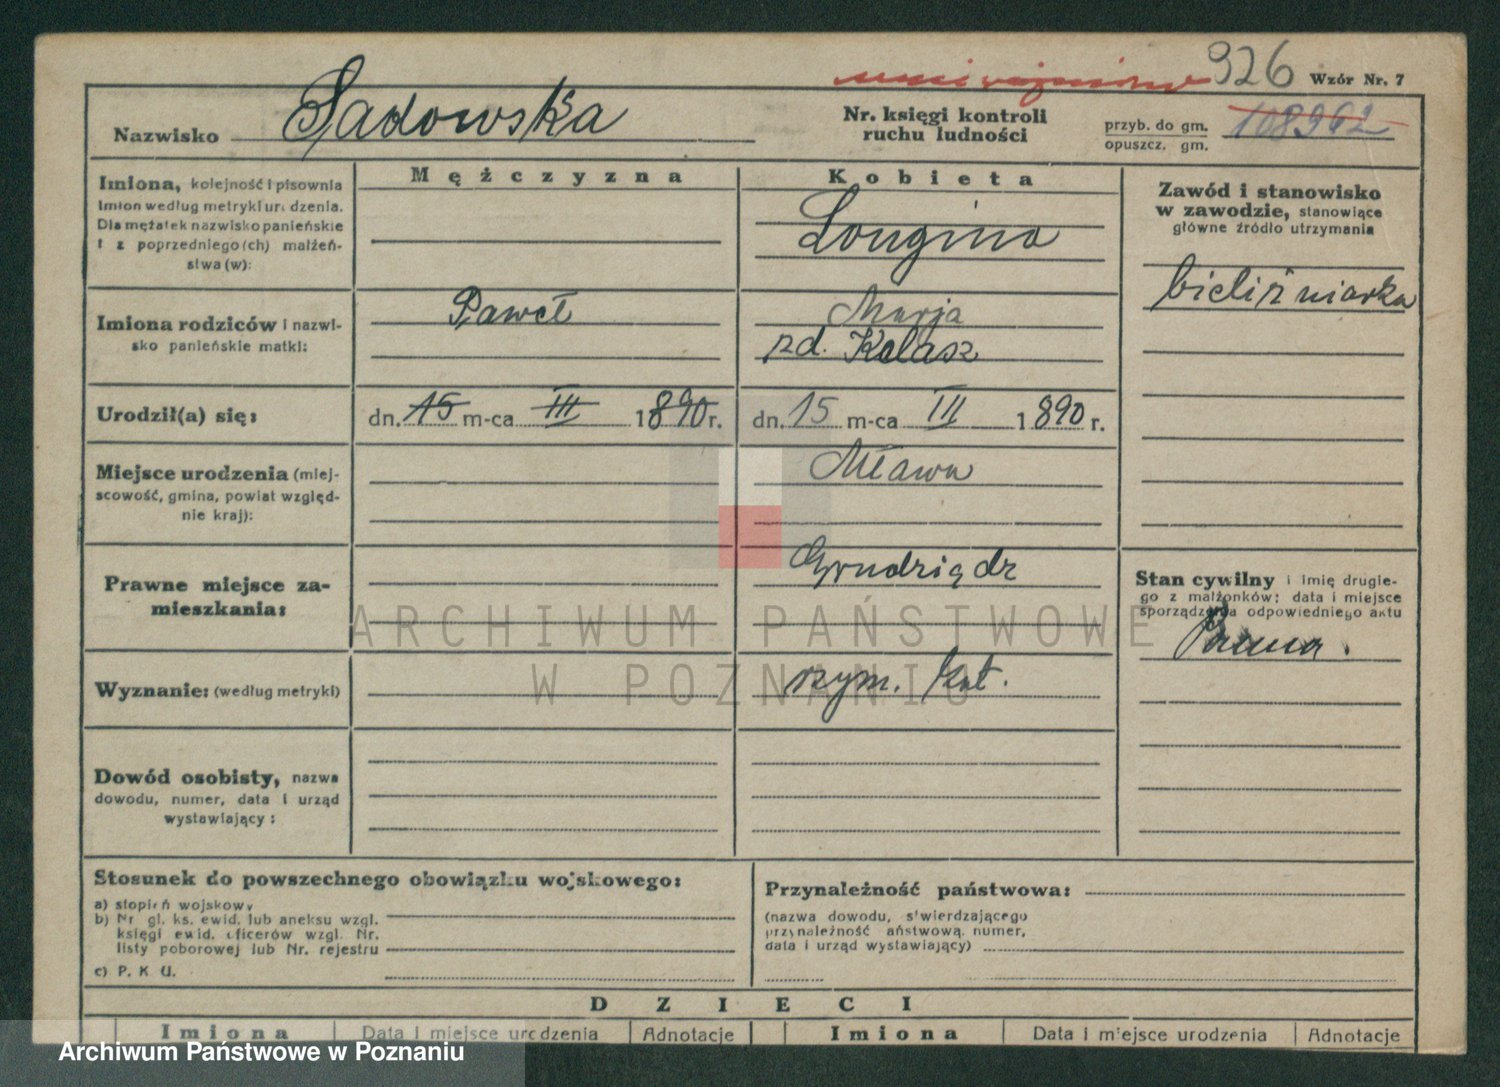 unieważniono 926 Wzór Nr. 7
Nazwisko Sadowska
Nr. księgi kontroli
ruchu ludności
przyb. do gm. 108962
opuszcz. gm.
Imiona, kolejność i pisownia
imion według metryki urodzenia.
Dla mężatek nazwisko panieńskie
i z poprzedniego(ch) małżeń-
stwa(w):
Mężczyzna
Kobieta
Longina
Zawód i stanowisko
w zawodzie, stanowiące
główne źródło utrzymania
bieliźniarka
Imiona rodziców i nazwi-
sko panieńskie matki:
Paweł
Marja
zd. Kalasz
Urodził(a) się:
dn. 15 m-ca III 1890 r.
dn. 15 m-ca III 1890 r.
Miejsce urodzenia (miej-
scowość, gmina, powiat względ-
nie kraj):
Mława
Prawne miejsce za-
mieszkania:
Grudziądz
Stan cywilny i imię drugie-
go z małżonków; data i miejsce
sporządzenia odpowiedniego aktu
Panna.
Wyznanie: (według metryki)
rzym. kat.
Dowód osobisty, nazwa
dowodu, numer, data i urząd
wystawiający:
Stosunek do powszechnego obowiązku wojskowego:
a) stopień wojskowy
b) Nr gl. ks. ewid. lub aneksu wzgl.
księgi ewid. oficerów wzgl. Nr.
listy poborowej lub Nr. rejestru
c) P. K. U.
Przynależność państwowa:
(nazwa dowodu, stwierdzającego
przynależność państwową, numer,
data i urząd wystawiający)
DZIECI
Imiona Data i miejsce urodzenia Adnotacje Imiona Data i miejsce urodzenia Adnotacje
ARCHIWUM PAŃSTWOWE
W POZNANIU
Archiwum Państwowe w Poznaniu